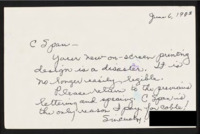 June 6, 1988
C Span -
Your new on-screen printing
design is a disaster. It is
no longer easily legible.
Please return to the previous
lettering and spacing. C Span is
the only reason I pay for cable!
Sincerely,